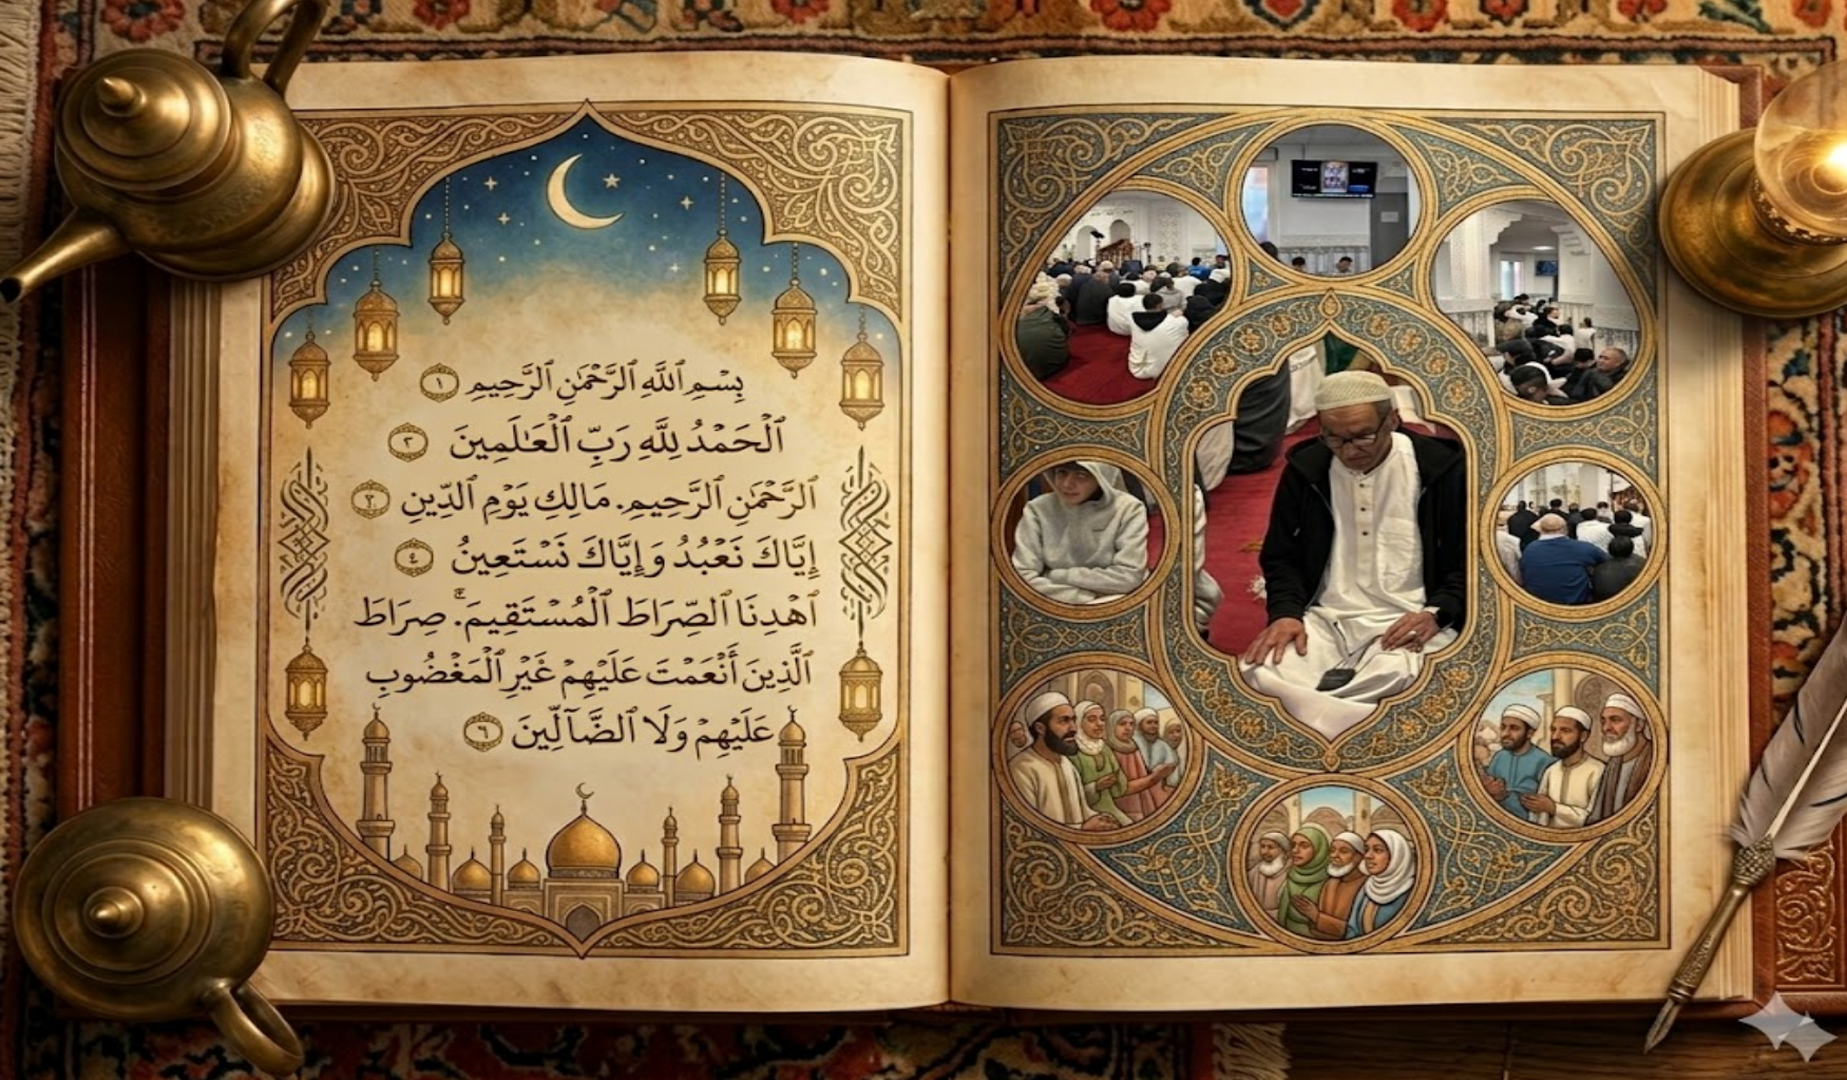 بِسْمِ ٱللَّهِ ٱلرَّحْمَٰنِ ٱلرَّحِيمِ ١
ٱلْحَمْدُ لِلَّهِ رَبِّ ٱلْعَـٰلَمِينَ ٢
ٱلرَّحْمَٰنِ ٱلرَّحِيمِ. مَالِكِ يَوْمِ ٱلدِّينِ ٣
إِيَّاكَ نَعْبُدُ وَإِيَّاكَ نَسْتَعِينُ ٤
ٱهْدِنَا ٱلصِّرَاطَ ٱلْمُسْتَقِيمَ. صِرَاطَ
ٱلَّذِينَ أَنْعَمْتَ عَلَيْهِمْ غَيْرِ ٱلْمَغْضُوبِ
عَلَيْهِمْ وَلَا ٱلضَّآلِّينَ ٦